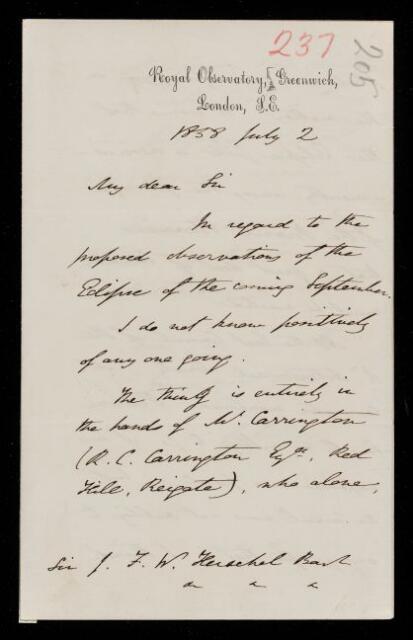 237
205
Royal Observatory, Greenwich,
London, S.E.
1858 July 2
My dear Sir
In regard to the
proposed observations of the
Eclipse of the coming September.
I do not know positively
of any one going.
The thing is entirely in
the hands of Mr. Carrington
(R. C. Carrington Esqre, Red
Hill, Reigate), who alone,
Sir J. F. W. Herschel Bart